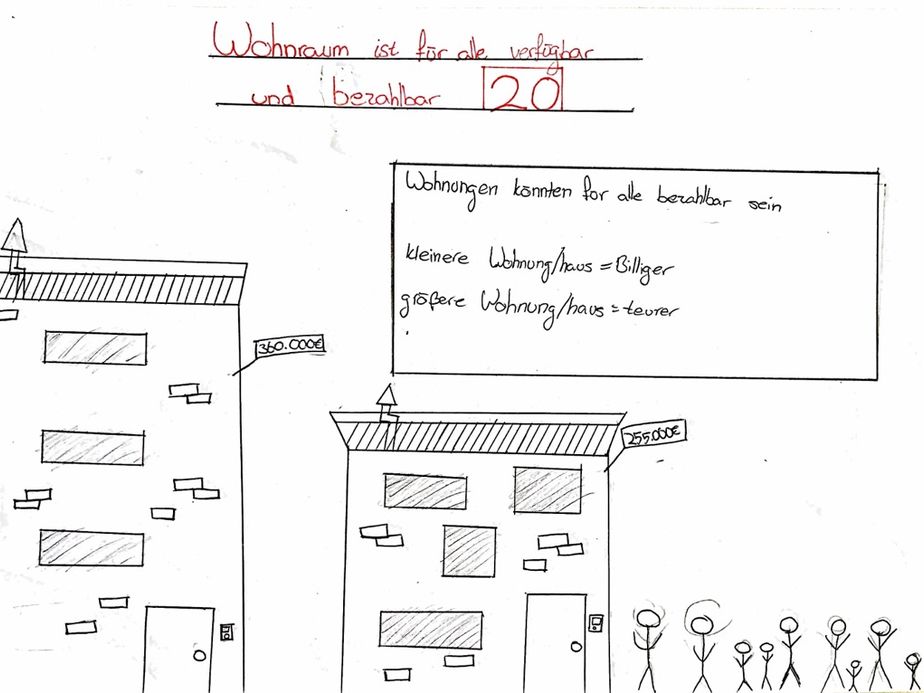 Wohnraum ist für alle verfügbar
und bezahlbar 20
Wohnungen könnten for alle bezahlbar sein
kleinere Wohnung/haus = Billiger
größere Wohnung/haus = teurer
360.000€
255.000€